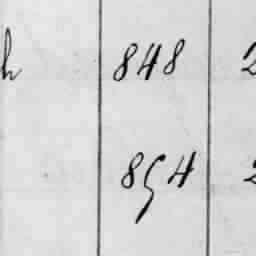 h 848 2
854 2